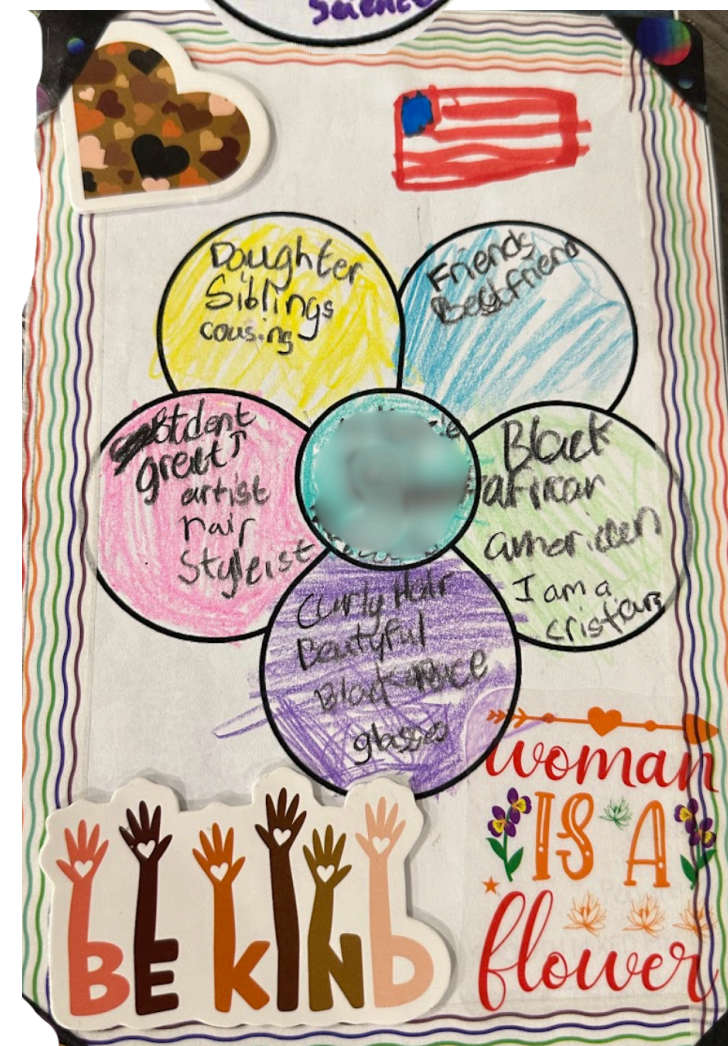 Science
Doughter
Siblings
cousing
Friends
Bestfriend
Stdent
great
artist
hair
Styleist
Black
african
american
I am a
cristian
Curly Hair
Beautyful
Black
glasses
woman
IS A
flower
BE KIND